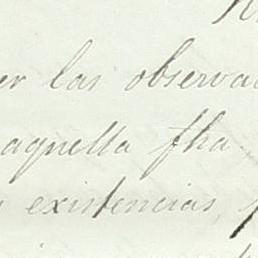 er las observa
aquella fha
existencias,